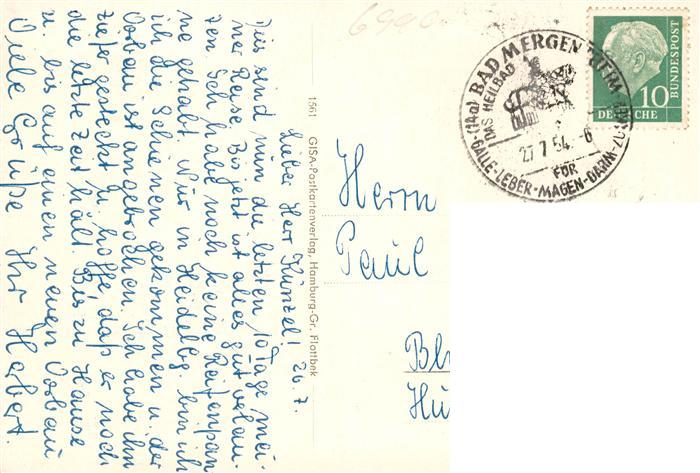 Lieber Herr Künzel! 26.7.
Wir sind nun die letzten 10 Tage mei-
ner Reise. Bis jetzt ist alles gut verlau-
fen. Ich habe noch keine Reifenpan
ne gehabt. Nur in Heidelbg. bin ich
in die Schienen gekommen u. der
Vorbau ist angebrochen. Ich habe ihn
tiefer gesteckt u. hoffe, daß er noch
die letzte Zeit hält. Bis zu Hause
u. bis auf einen neuen Vorbau
Viele Grüße Ihr Herbert.
1561 GISA-Postkartenverlag, Hamburg-Gr. Flottbek
6990
(14a) BAD MERGENTHEIM
DAS HEILBAD
27.7.54.-6
FÜR
GALLE-LEBER-MAGEN-DARM
DEUTSCHE
BUNDESPOST
10
Herrn
Paul
Bl
Hü